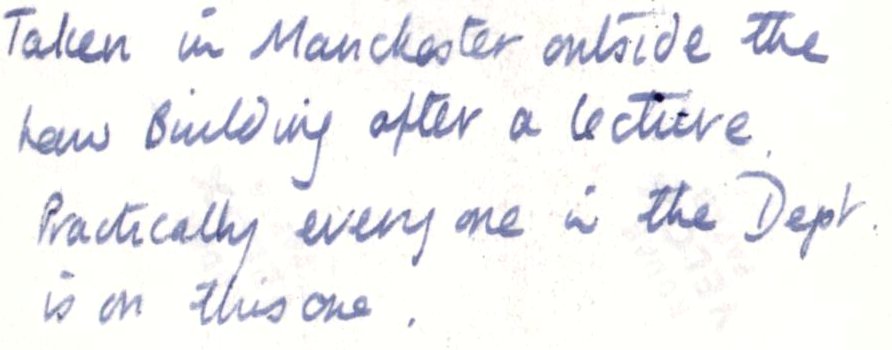 Taken in Manchester outside the
Law Building after a lecture.
Practically everyone in the Dept.
is on this one.